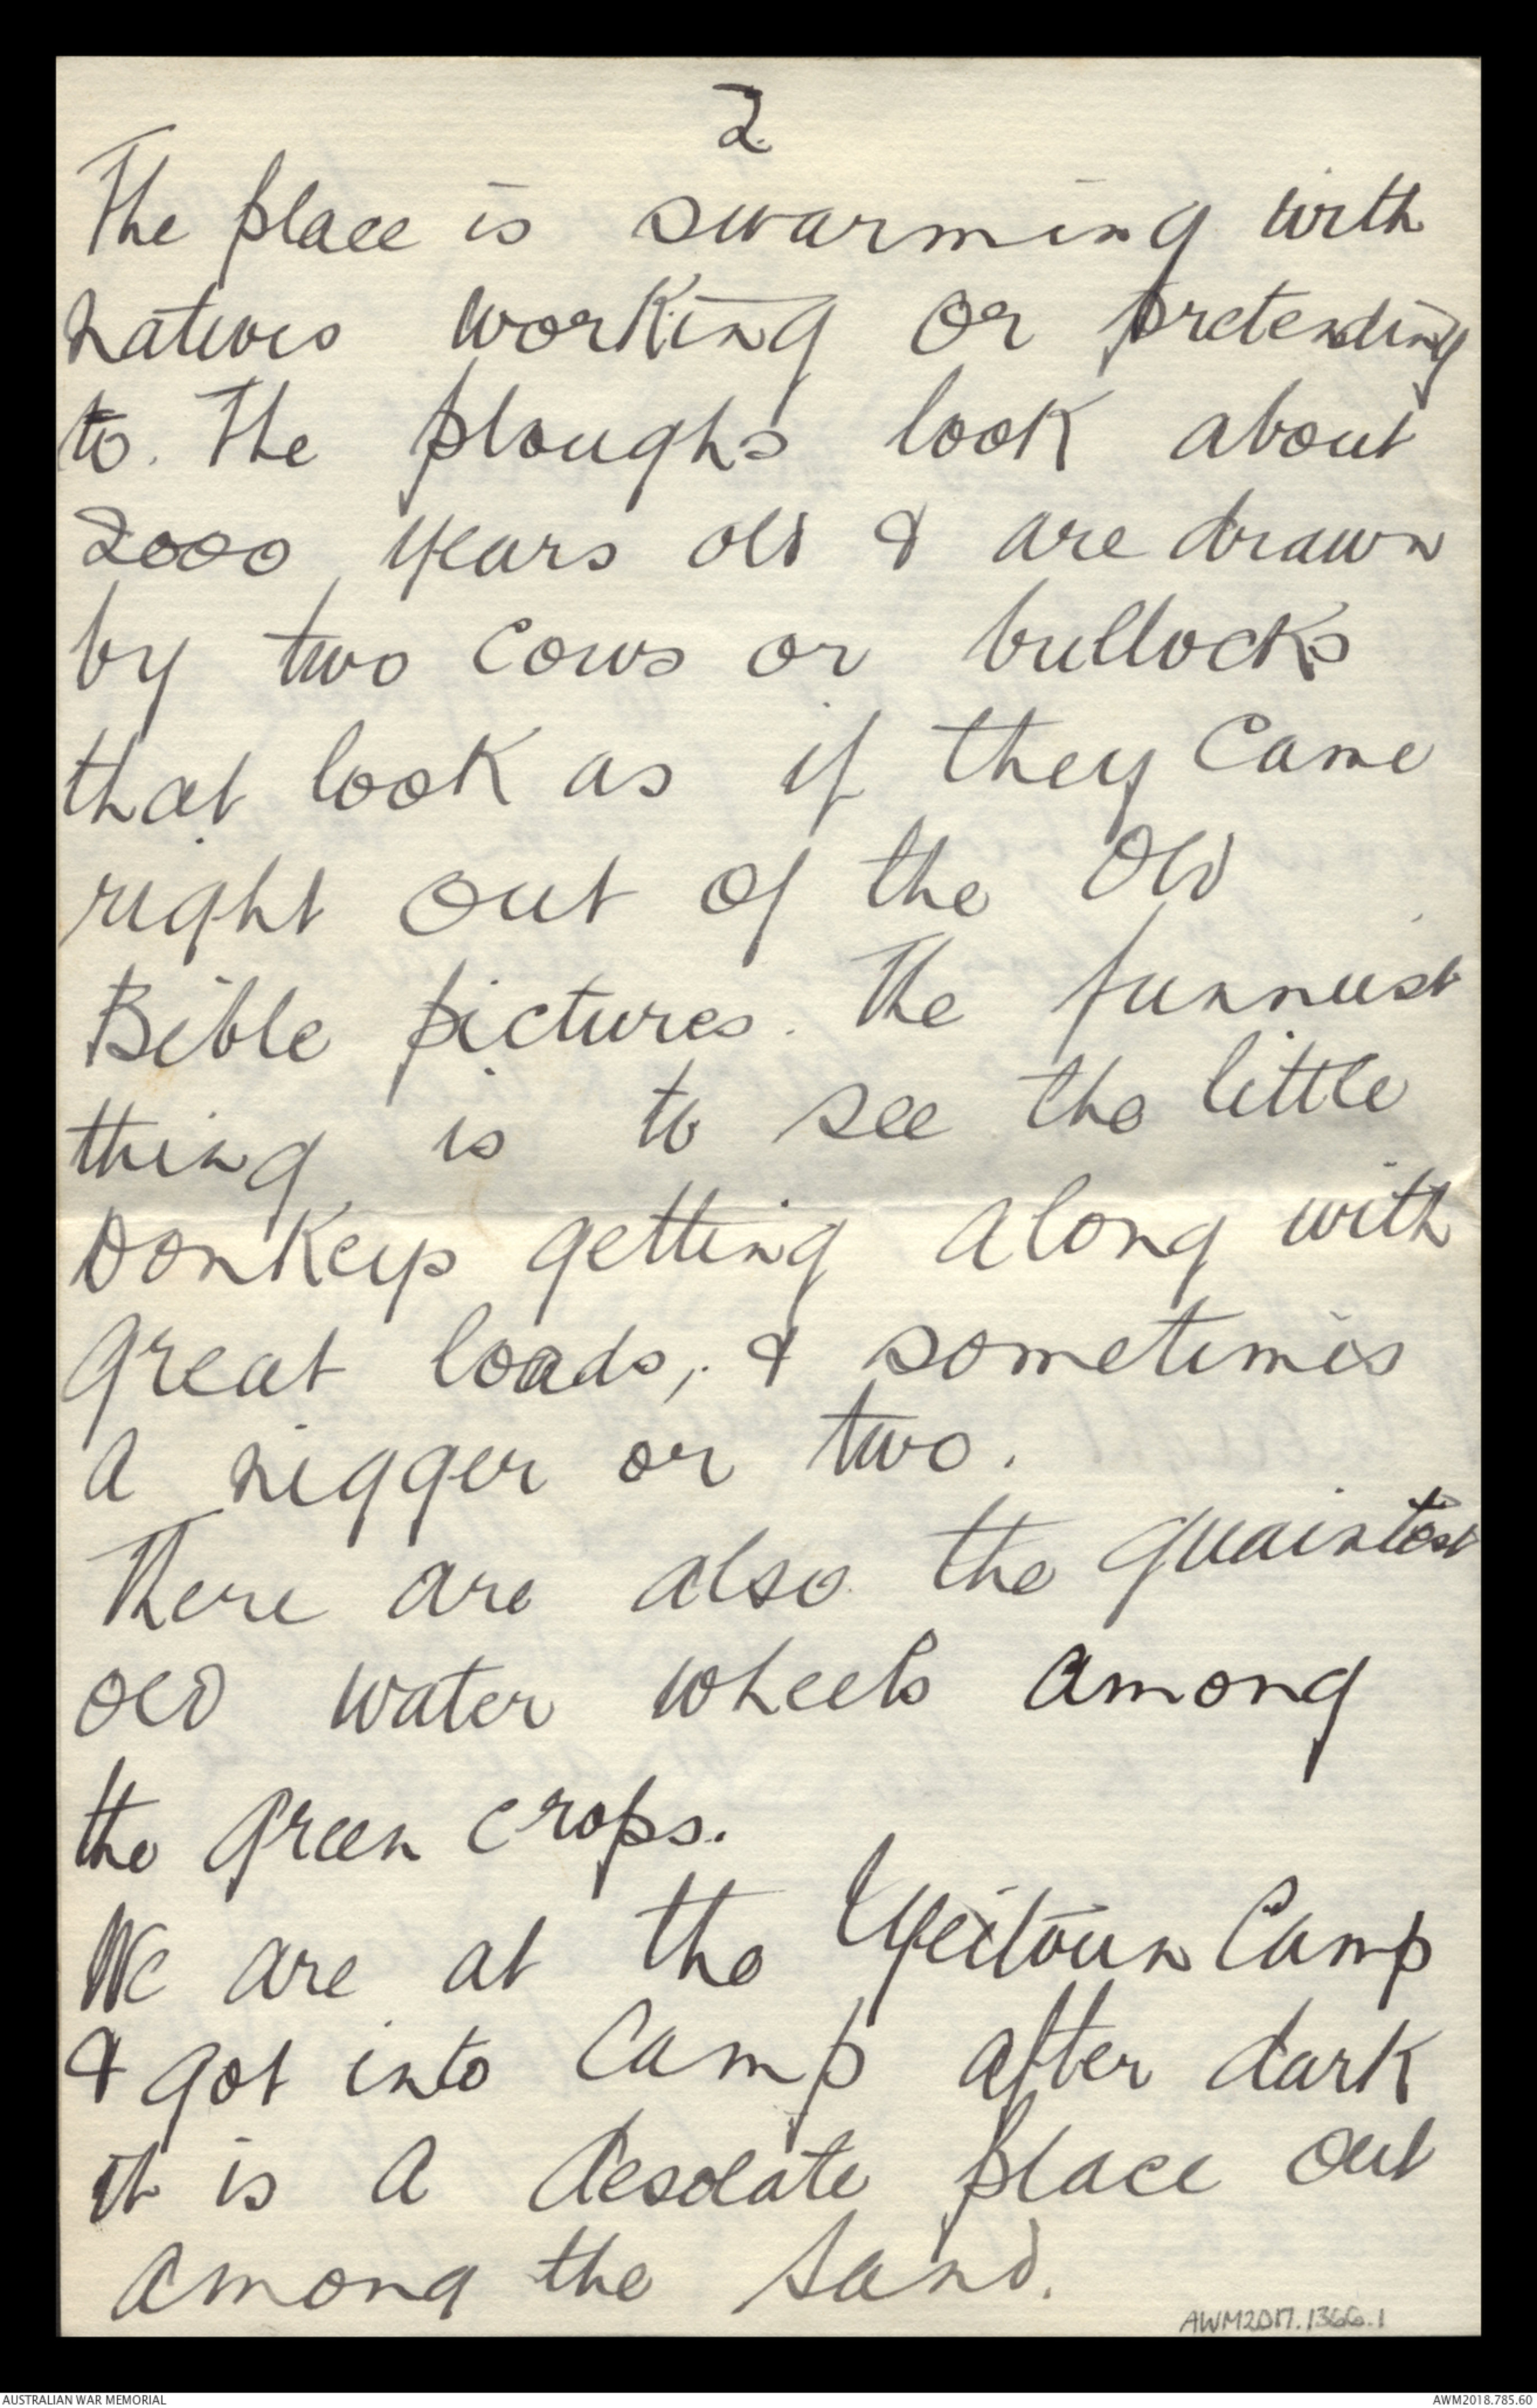 2
The place is swarming with
natives working or pretending
to. The ploughs look about
2000 years old & are drawn
by two cows or bullocks
that look as if they came
right out of the Old
Bible pictures. The funniest
thing is to see the little
Donkeys getting along with
great loads, & sometimes
a nigger or two.
There are also the quaintest
old water wheels among
the green crops.
We are at the Yeitoun Camp
& got into Camp after dark
it is a desolate place out
among the sand.
AWM2017.1366.1
AUSTRALIAN WAR MEMORIAL
AWM2018.785.60